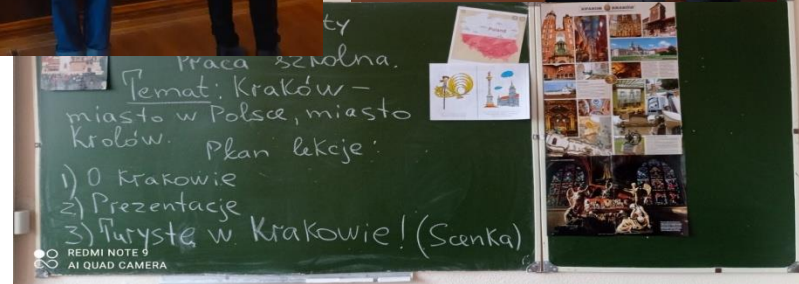 ty
Praca szkolna.
Temat: Kraków –
miasto w Polsce, miasto
Królów.
Plan lekcje:
1) O Krakowie
2) Prezentacje
3) Turystę w Krakowie! (Scenka)
REDMI NOTE 9
AI QUAD CAMERA
Poland
KRAKÓW